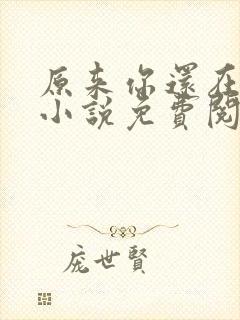 原来你還在
小說免費閱
庞世賢